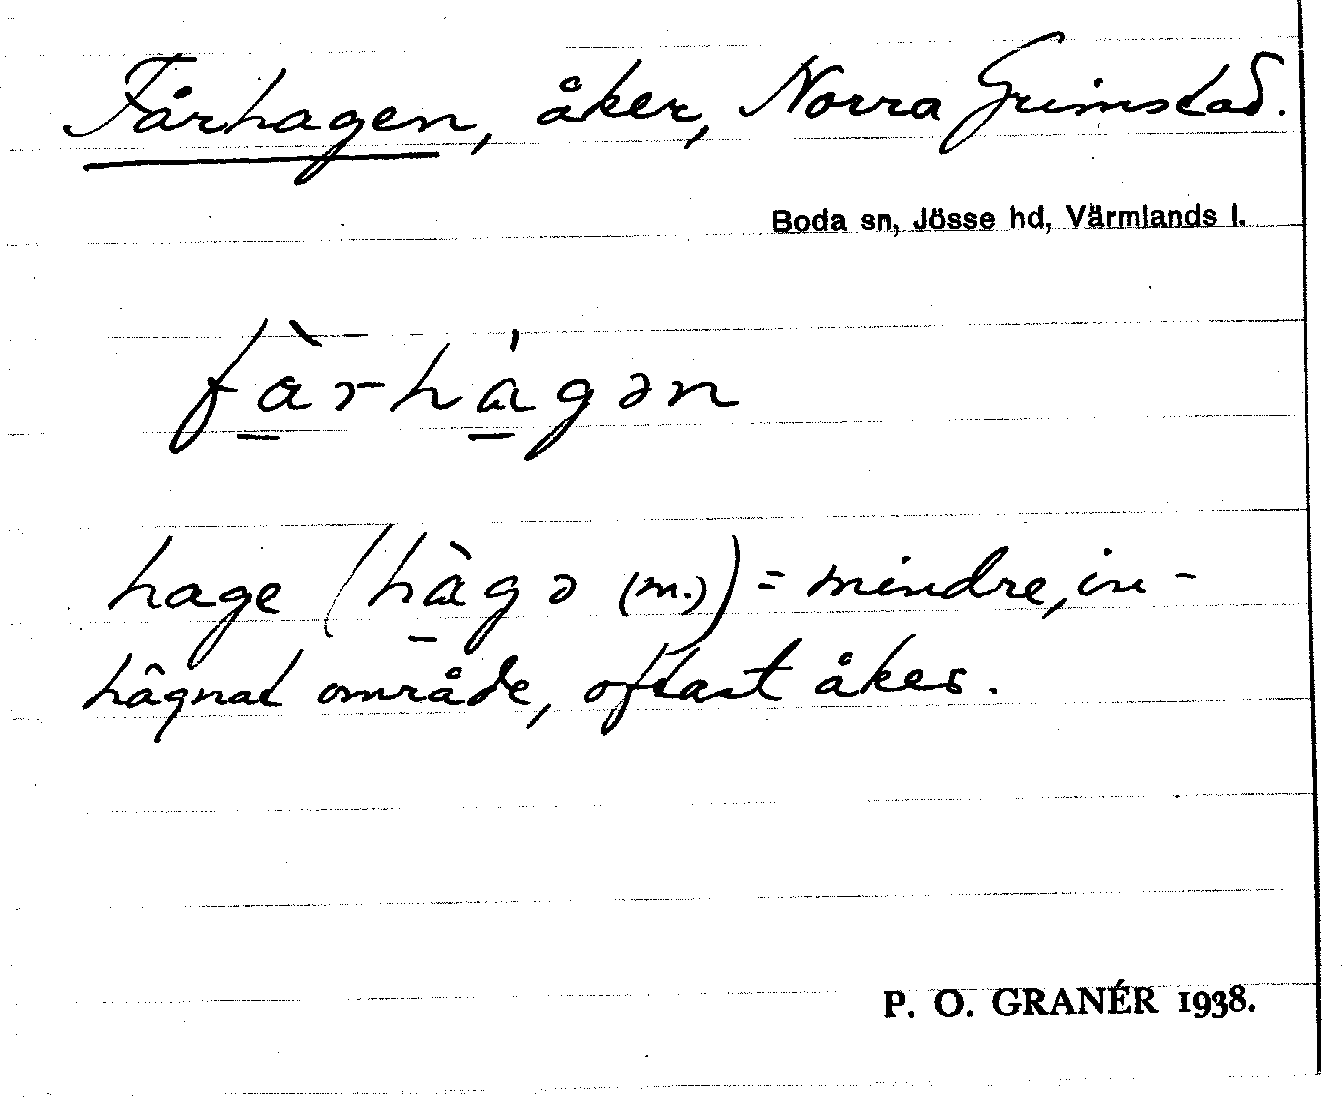 Fårhagen, åker, Norra Grimstad.
Boda sn, Jösse hd, Värmlands l.
fàrhágən
hage (hàgə (m.)) = mindre, in-
hägnat område, oftast åker.
P. O. GRANÉR 1938.